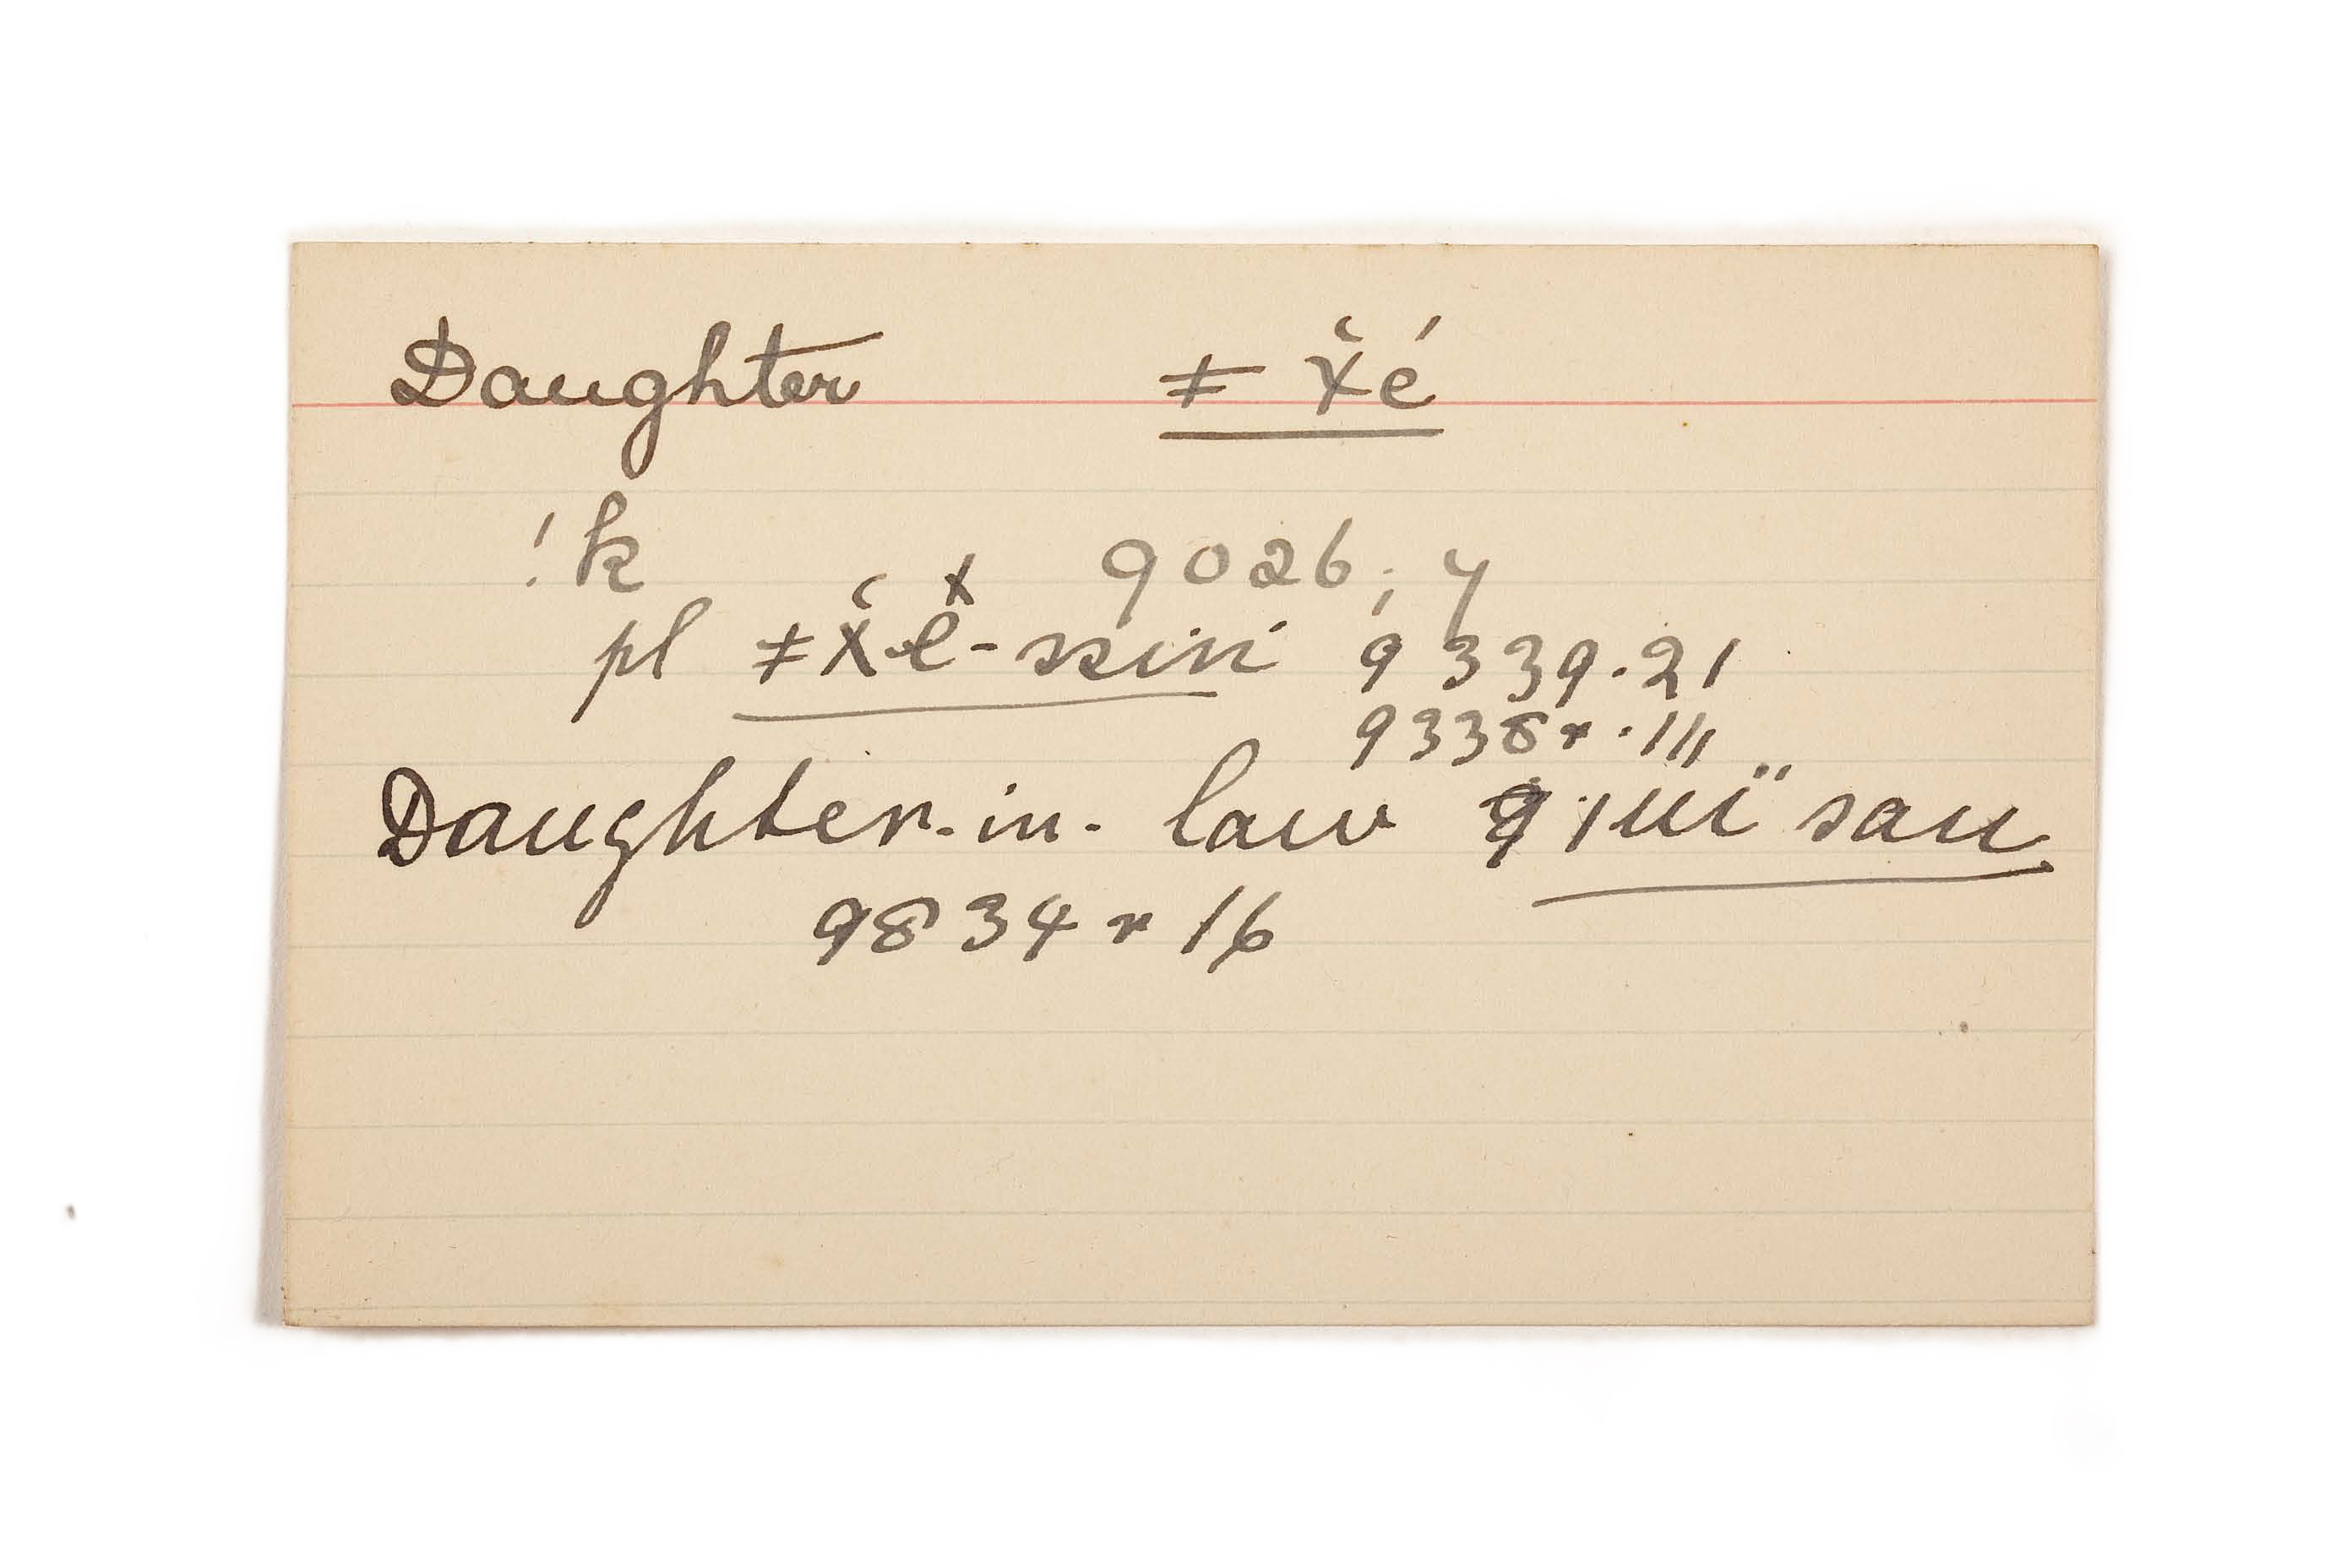 Daughter ǂ χ̆é
!k 9026, y
pl ǂχ̆ĕ-ssin 9339.21
9338r.111
Daughter-in-law
9834r 16